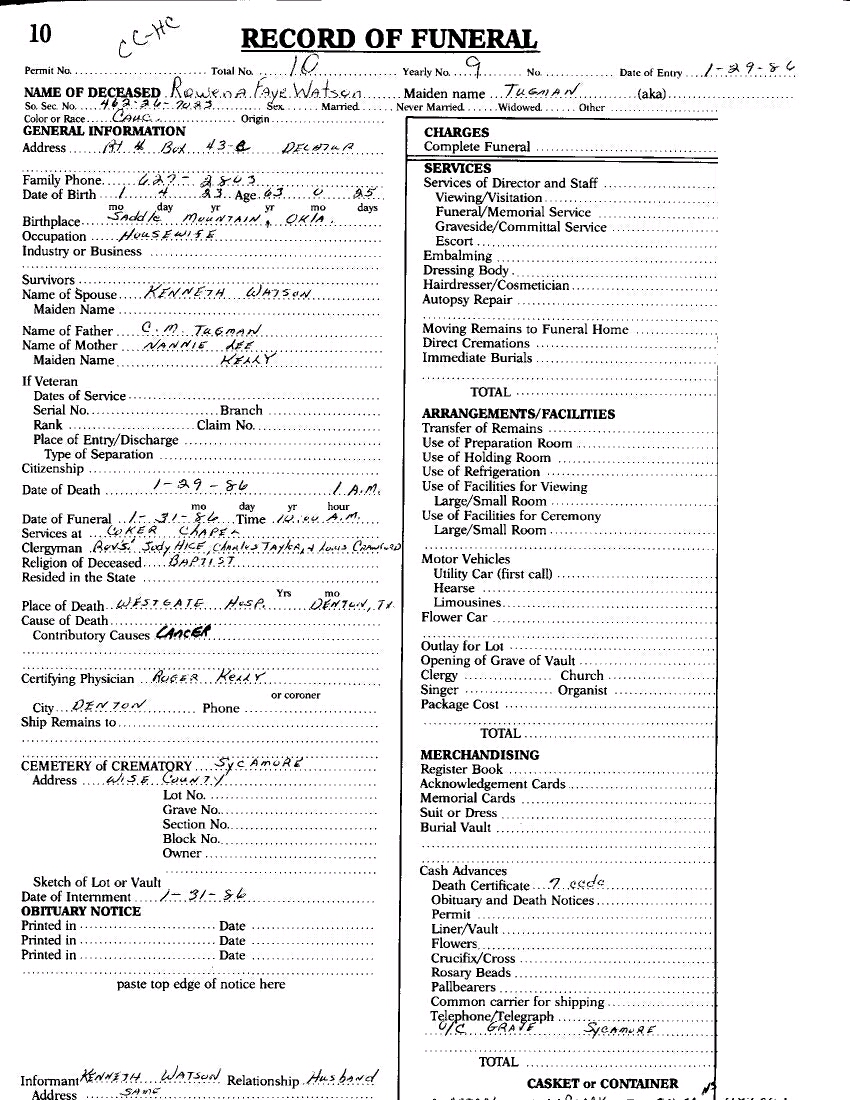 10
CC-HC
RECORD OF FUNERAL
Permit No. Total No. 10 Yearly No. 9 No. Date of Entry 1-29-86
NAME OF DECEASED Rowena Faye Watson Maiden name TUGMAN (aka)
So. Sec. No. 462-26-7023 Sex Married Never Married Widowed Other
Color or Race CAUC. Origin
GENERAL INFORMATION
Address Rt 4 Box 43-C DECATUR
Family Phone 627-2863
Date of Birth 1 4 23 Age 63 0 25
mo day yr yr mo days
Birthplace Saddle MOUNTAIN, OKLA.
Occupation HOUSEWIFE
Industry or Business
Survivors
Name of Spouse KENNETH WATSON
Maiden Name
Name of Father C. M. TUGMAN
Name of Mother NANNIE LEE
Maiden Name KELLY
If Veteran
Dates of Service
Serial No. Branch
Rank Claim No.
Place of Entry/Discharge
Type of Separation
Citizenship
Date of Death 1-29-86 1 A.M.
mo day yr hour
Date of Funeral 1-31-86 Time 10:00 A.M.
Services at COKER CHAPEL
Clergyman Revs. Jody HICE, Charles Taylor, + Louis Crawford
Religion of Deceased BAPTIST
Resided in the State
Yrs mo
Place of Death WESTGATE HOSP. DENTON, TX
Cause of Death
Contributory Causes CANCER
Certifying Physician ROGER KELLY
or coroner
City DENTON Phone
Ship Remains to
CEMETERY OF CREMATORY SYCAMORE
Address WISE COUNTY
Lot No.
Grave No.
Section No.
Block No.
Owner
Sketch of Lot or Vault
Date of Internment 1-31-86
OBITUARY NOTICE
Printed in Date
Printed in Date
Printed in Date
paste top edge of notice here
Informant KENNETH WATSON Relationship Husband
Address SAME
CHARGES
Complete Funeral
SERVICES
Services of Director and Staff
Viewing/Visitation
Funeral/Memorial Service
Graveside/Committal Service
Escort
Embalming
Dressing Body
Hairdresser/Cosmetician
Autopsy Repair
Moving Remains to Funeral Home
Direct Cremations
Immediate Burials
TOTAL
ARRANGEMENTS/FACILITIES
Transfer of Remains
Use of Preparation Room
Use of Holding Room
Use of Refrigeration
Use of Facilities for Viewing
Large/Small Room
Use of Facilities for Ceremony
Large/Small Room
Motor Vehicles
Utility Car (first call)
Hearse
Limousines
Flower Car
Outlay for Lot
Opening of Grave of Vault
Clergy Church
Singer Organist
Package Cost
TOTAL
MERCHANDISING
Register Book
Acknowledgement Cards
Memorial Cards
Suit or Dress
Burial Vault
Cash Advances
Death Certificate 7
Obituary and Death Notices
Permit
Liner/Vault
Flowers
Crucifix/Cross
Rosary Beads
Pallbearers
Common carrier for shipping
Telephone/Telegraph
O/C GRAVE SYCAMORE
TOTAL
CASKET or CONTAINER